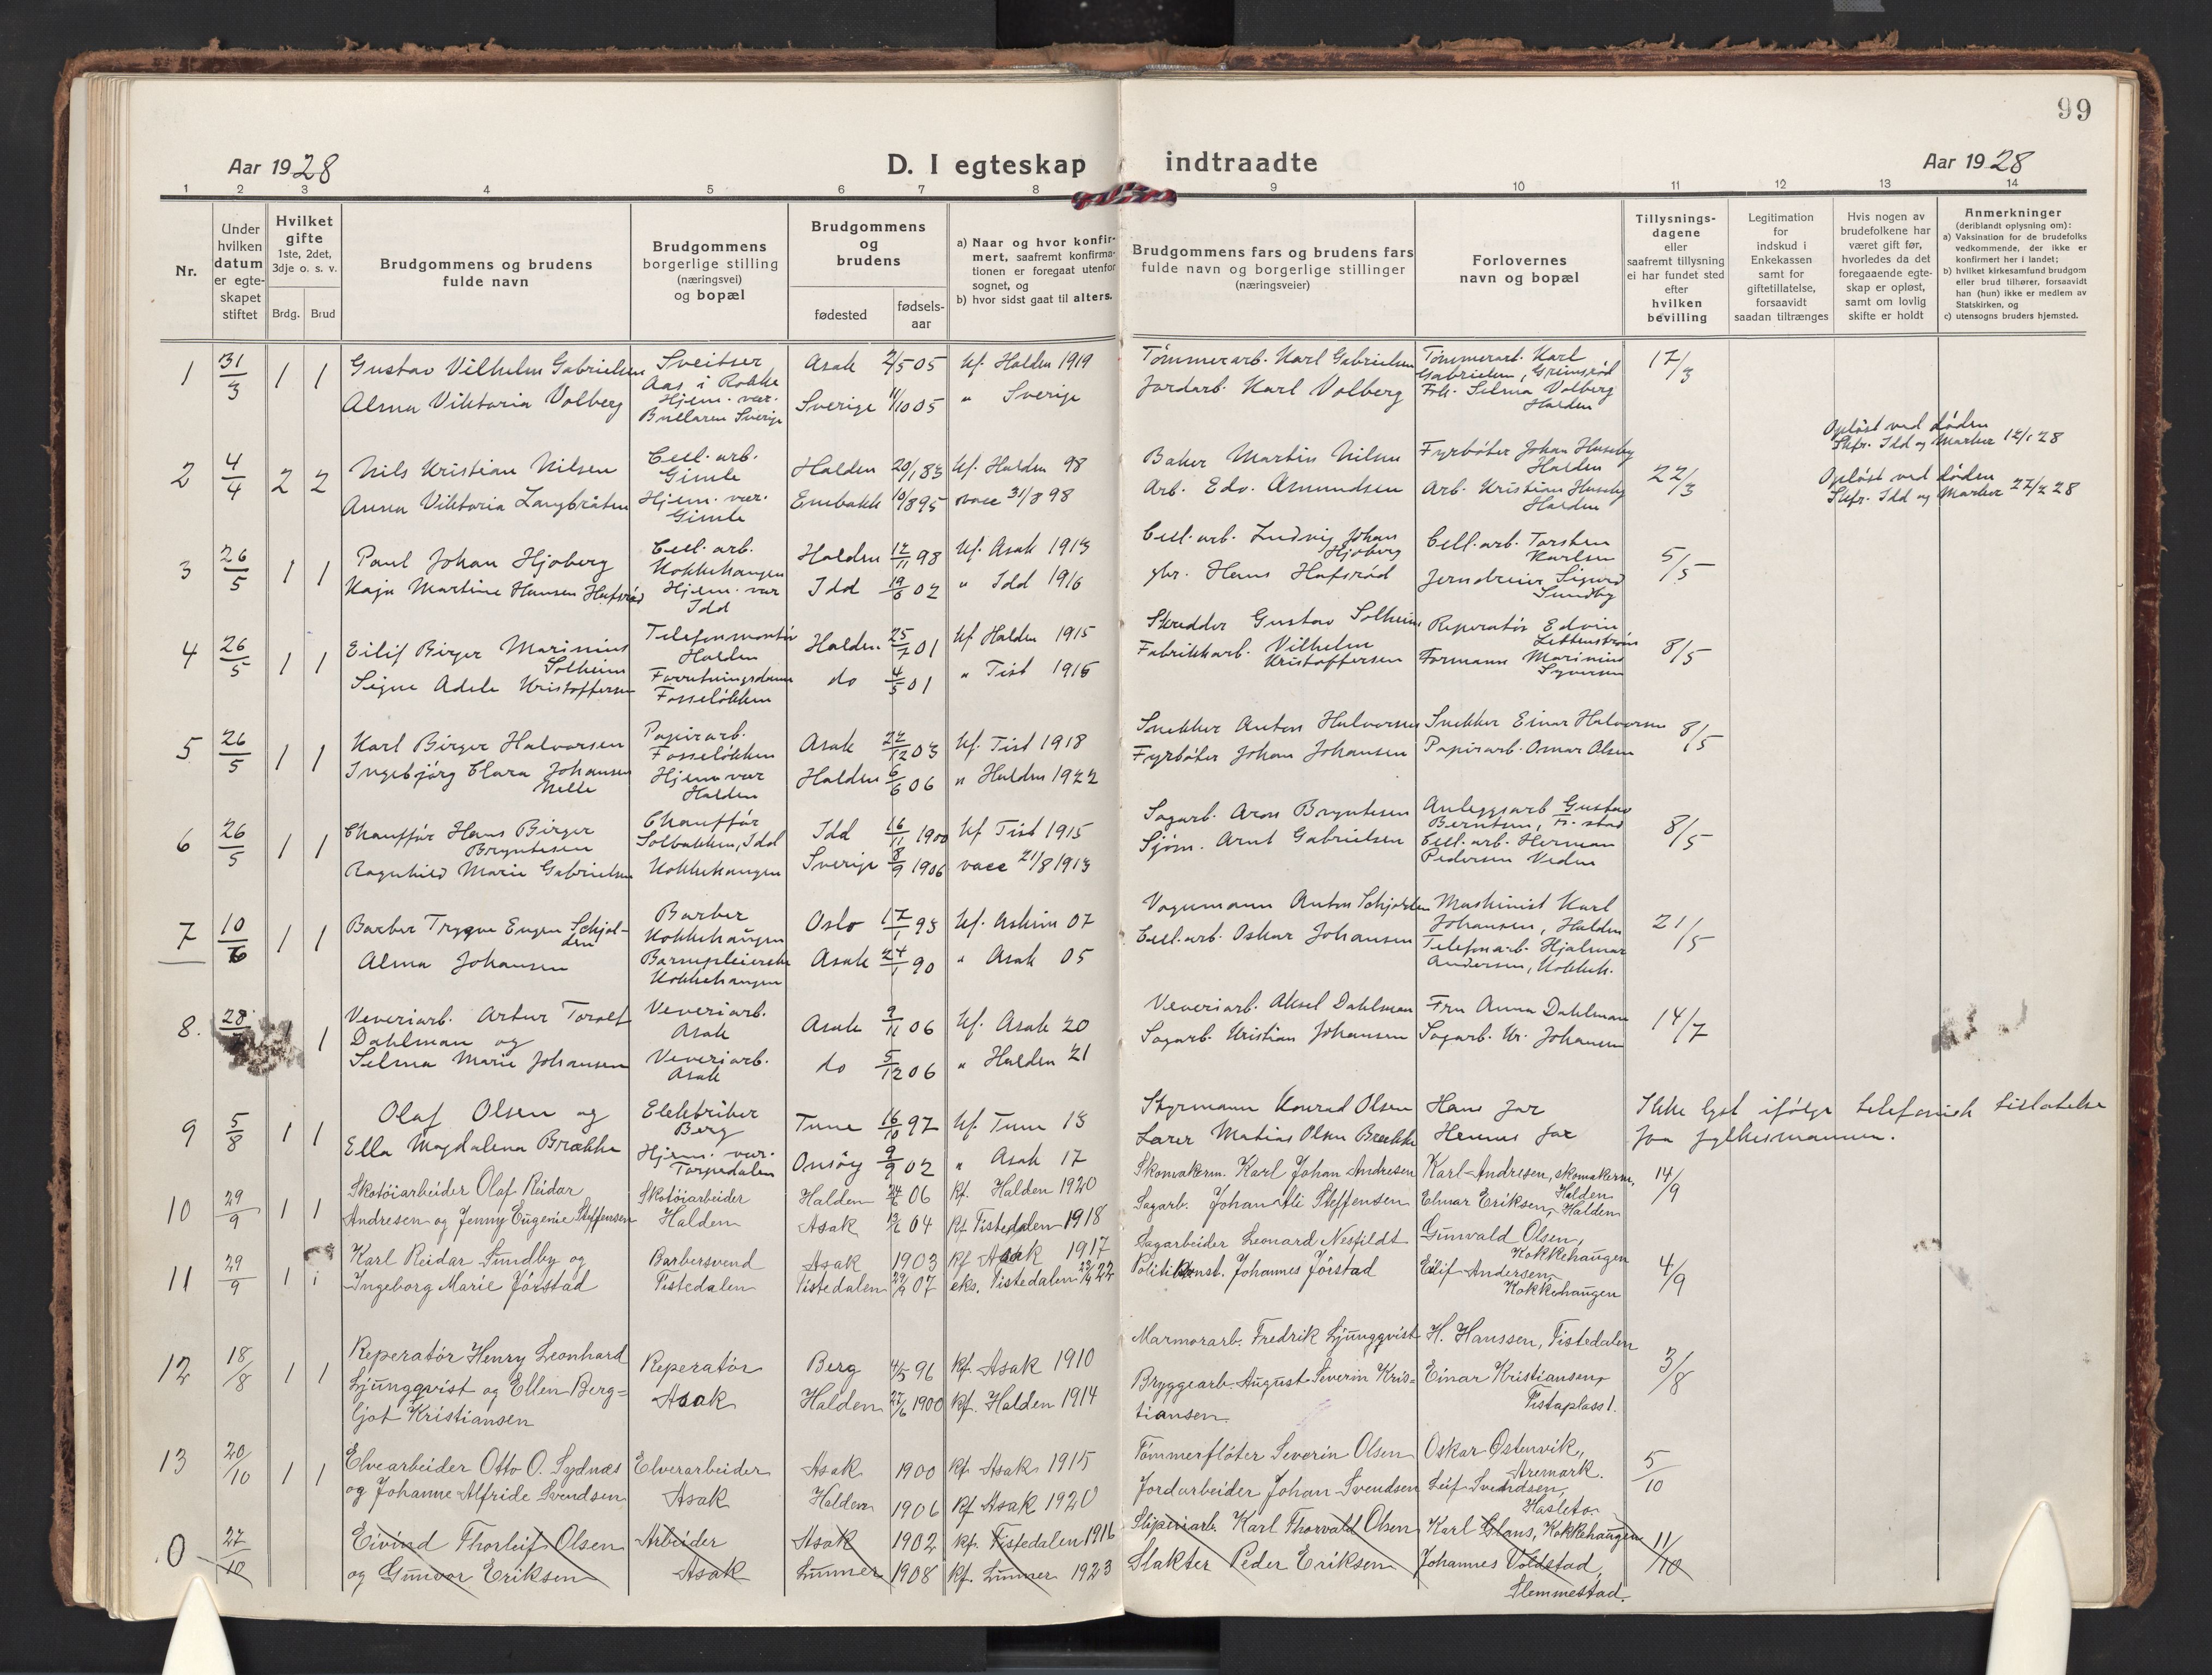 99
Aar 1928
D. I egteskap indtraadte
Aar 1928
1 2 3 4 5 6 7 8 9 10 11 12 13 14
Nr.
Under hvilken datum er egte-skapet stiftet
Hvilket gifte 1ste, 2det, 3dje o. s. v.
Brdg. Brud
Brudgommens og brudens fulde navn
Brudgommens borgerlige stilling (næringsvei) og bopæl
Brudgommens og brudens
fødested
fødsels-aar
a) Naar og hvor konfir-mert, saafremt konfirma-tionen er foregaat utenfor sognet, og
b) hvor sidst gaat til alters.
Brudgommens fars og brudens fars fulde navn og borgerlige stillinger (næringsveier)
Forlovernes navn og bopæl
Tillysnings-dagene eller saafremt tillysning ei har fundet sted efter hvilken bevilling
Legitimation for indskud i Enkekassen samt for giftetillatelse, forsaavidt saadan tiltrænges
Hvis nogen av brudefolkene har været gift før, hvorledes da det foregaaende egte-skap er opløst, samt om lovlig skifte er holdt
Anmerkninger (deriblandt oplysning om):
a) Vaksination for de brudefolks vedkommende, der ikke er konfirmert her i landet;
b) hvilket kirkesamfund brudgom eller brud tilhører, forsaavidt han (hun) ikke er medlem av Statskirken, og
c) utensogns bruders hjemsted.
1 31/3 1 1 Gustav Vilhelm Gabrielsen Sveitser Aas i Rokke Asak 2/5 05 kf. Halden 1919 Tømmerarb. Karl Gabrielsen Tømmerarb. Karl Gabrielsen, Grimsrød 17/3
Alma Viktoria Volberg Hjem. vær. Bullaren Sverige Sverige 11/10 05 " Sverige Jordarb. Karl Volberg Frk. Selma Volberg Halden
2 4/4 2 2 Nils Kristian Nilsen Cell. arb. Gimle Halden 20/1 83 kf. Halden 98 Baker Martin Nilsen Fyrbøter Johan Huseby Halden 22/3 Opløst ved døden Skfr. Idd og Marker 12/1 28
Anna Viktoria Langbråten Hjem. vær. Gimle Enebakk 10/8 95 vacc 31/8 98 Arb. Edv. Amundsen Arb. Kristian Huseby Halden Opløst ved døden Skfr. Idd og Marker 27/2 28
3 26/5 1 1 Paul Johan Hjøberg Cell. arb. Kokkehaugen Halden 12/11 98 kf. Asak 1913 Cell. arb. Ludvig Johan Hjøberg Cell. arb. Torsten Karlsen 5/5
Kaja Martine Hansen Hafsrød Hjem. vær Idd Idd 19/6 02 " Idd 1916 Hans Hafsrød Jerndreier Sigurd Sundby
4 26/5 1 1 Eilif Birger Marinius Solheim Telefonmontør Halden Halden 25/7 01 kf Halden 1915 Skredder Gustav Solheim Reperatør Edvin 8/5
Signe Adele Kristoffersen Forretningsdame Fosseløkken do 4/5 01 " Tist 1916 Fabrikkarb. Vilhelm Kristoffersen Formann Marinius Syversen
5 26/5 1 1 Karl Birger Halvorsen Papirarb. Fosseløkken Asak 22/12 03 kf. Tist 1918 Snekker Anton Halvorsen Snekker Einar Halvorsen 8/5
Ingebjørg Clara Johansen Helle Hjem vær Halden Halden 6/6 06 " Halden 1922 Fyrbøter Johan Johansen Papirarb. Osmar Olsen
6 26/5 1 1 Chauffør Hans Birger Bryntesen Chauffør Solbakken, Idd Idd 16/11 1900 kf Tist 1915 Sagarb. Aron Bryntesen Anleggsarb Gustav Berntsen, Fr. stad 8/5
Ragnhild Marie Gabrielsen Kokkehaugen Sverige 8/9 1906 vacc 21/8 1913 Sjøm. Arnt Gabrielsen Cell. arb. Herman Pedersen Veden
7 10/6 1 1 Barber Trygve Eugen Schjolden Barber Kokkehaugen Oslo 17/1 93 kf. Askim 07 Vognmann Anton Schjolden Maskinist Karl Johansen, Halden 21/5
Alma Johansen Barnepleierske Kokkehaugen Asak 24/1 90 " Asak 05 Cell. arb. Oskar Johansen Telefonarb. Hjalmar Andersen, Kokkeh.
8. 28 1 Veveriarb. Artur Toralf Dahlman og Veveriarb. Asak Asak 9/11 06 kf. Asak 20 Veveriarb. Aksel Dahlman Fru Anna Dahlman 14/7
Selma Marie Johansen Veveriarb. Asak do 5/12 06 " Halden 21 Sagarb. Kristian Johansen Sagarb. Kr. Johansen
9 5/8 1 1 Olaf Olsen og Elektriker Berg Tune 16/10 97 kf. Tune 13 Styrmann Konrad Olsen Hans Jar Ikke lyst ifølge telefonisk tillatelse
Ella Magdalena Brække Hjem. vær. Torpedalen Onsøy 9/9 02 " Asak 17 Lærer Matias Olsen Brække Hennes far fra fylkesmannen.
10 29/9 1 1 Skotøiarbeider Olaf Reidar Skotøiarbeider Halden 06 kf. Halden 1920 Skomakerm. Karl Johan Andresen Karl Andresen, skomakerm. Halden 14/9
Andresen og Jenny Eugenie Steffensen Halden Asak 04 kf Tistedalen 1918 Sagarb. Johan Atli Steffensen Elmar Eriksen, Halden
11 29/9 1 i Karl Reidar Sundby og Barbersvend Asak 1903 kf Asak 1917 Sagarbeider Leonard Nesfildt Gunvald Olsen, Kokkehaugen 4/9
Ingeborg Marie Jørstad Tistedalen Tistedalen 07 eks. Tistedalen 22 Politikonst. Johannes Jørstad Eilif Andersen Kokkehaugen
12 18/8 1 1 Reperatør Henry Leonhard Reperatør Berg 4/5 96 kf. Asak 1910 Marmorarb. Fredrik Ljungqvist H. Hanssen, Tistedalen 3/8
Ljungqvist og Ellen Berg= Asak Halden 27/6 1900 kf. Halden 1914 Bryggearb. August Severin Kris= Einar Kristiansen,
ljot Kristiansen tiansen Tistaplass 1.
13 20/10 1 1 Elvearbeider Otto O. Sydnæs Elverarbeider Asak 1900 kf. Asak 1915 Tømmerfløter Severin Olsen Oskar Østenvik, Aremark. 5/10
og Johanne Alfride Svendsen Asak Halden 1906 kf Asak 1920 Jordarbeider Johan Svendsen Leif Svendsen,
0 27/10 Eivind Thorleif Olsen Arbeider Asak 1902 kf. Tistedalen 1916 Sliperiarb. Karl Thorvald Olsen Karl Glans, Kokkehaugen 11/10
og Gunvor Eriksen Asak Lunner 1908 kf. Lunner 1923 Slakter Peder Eriksen Johannes Voldstad, Slemmestad.